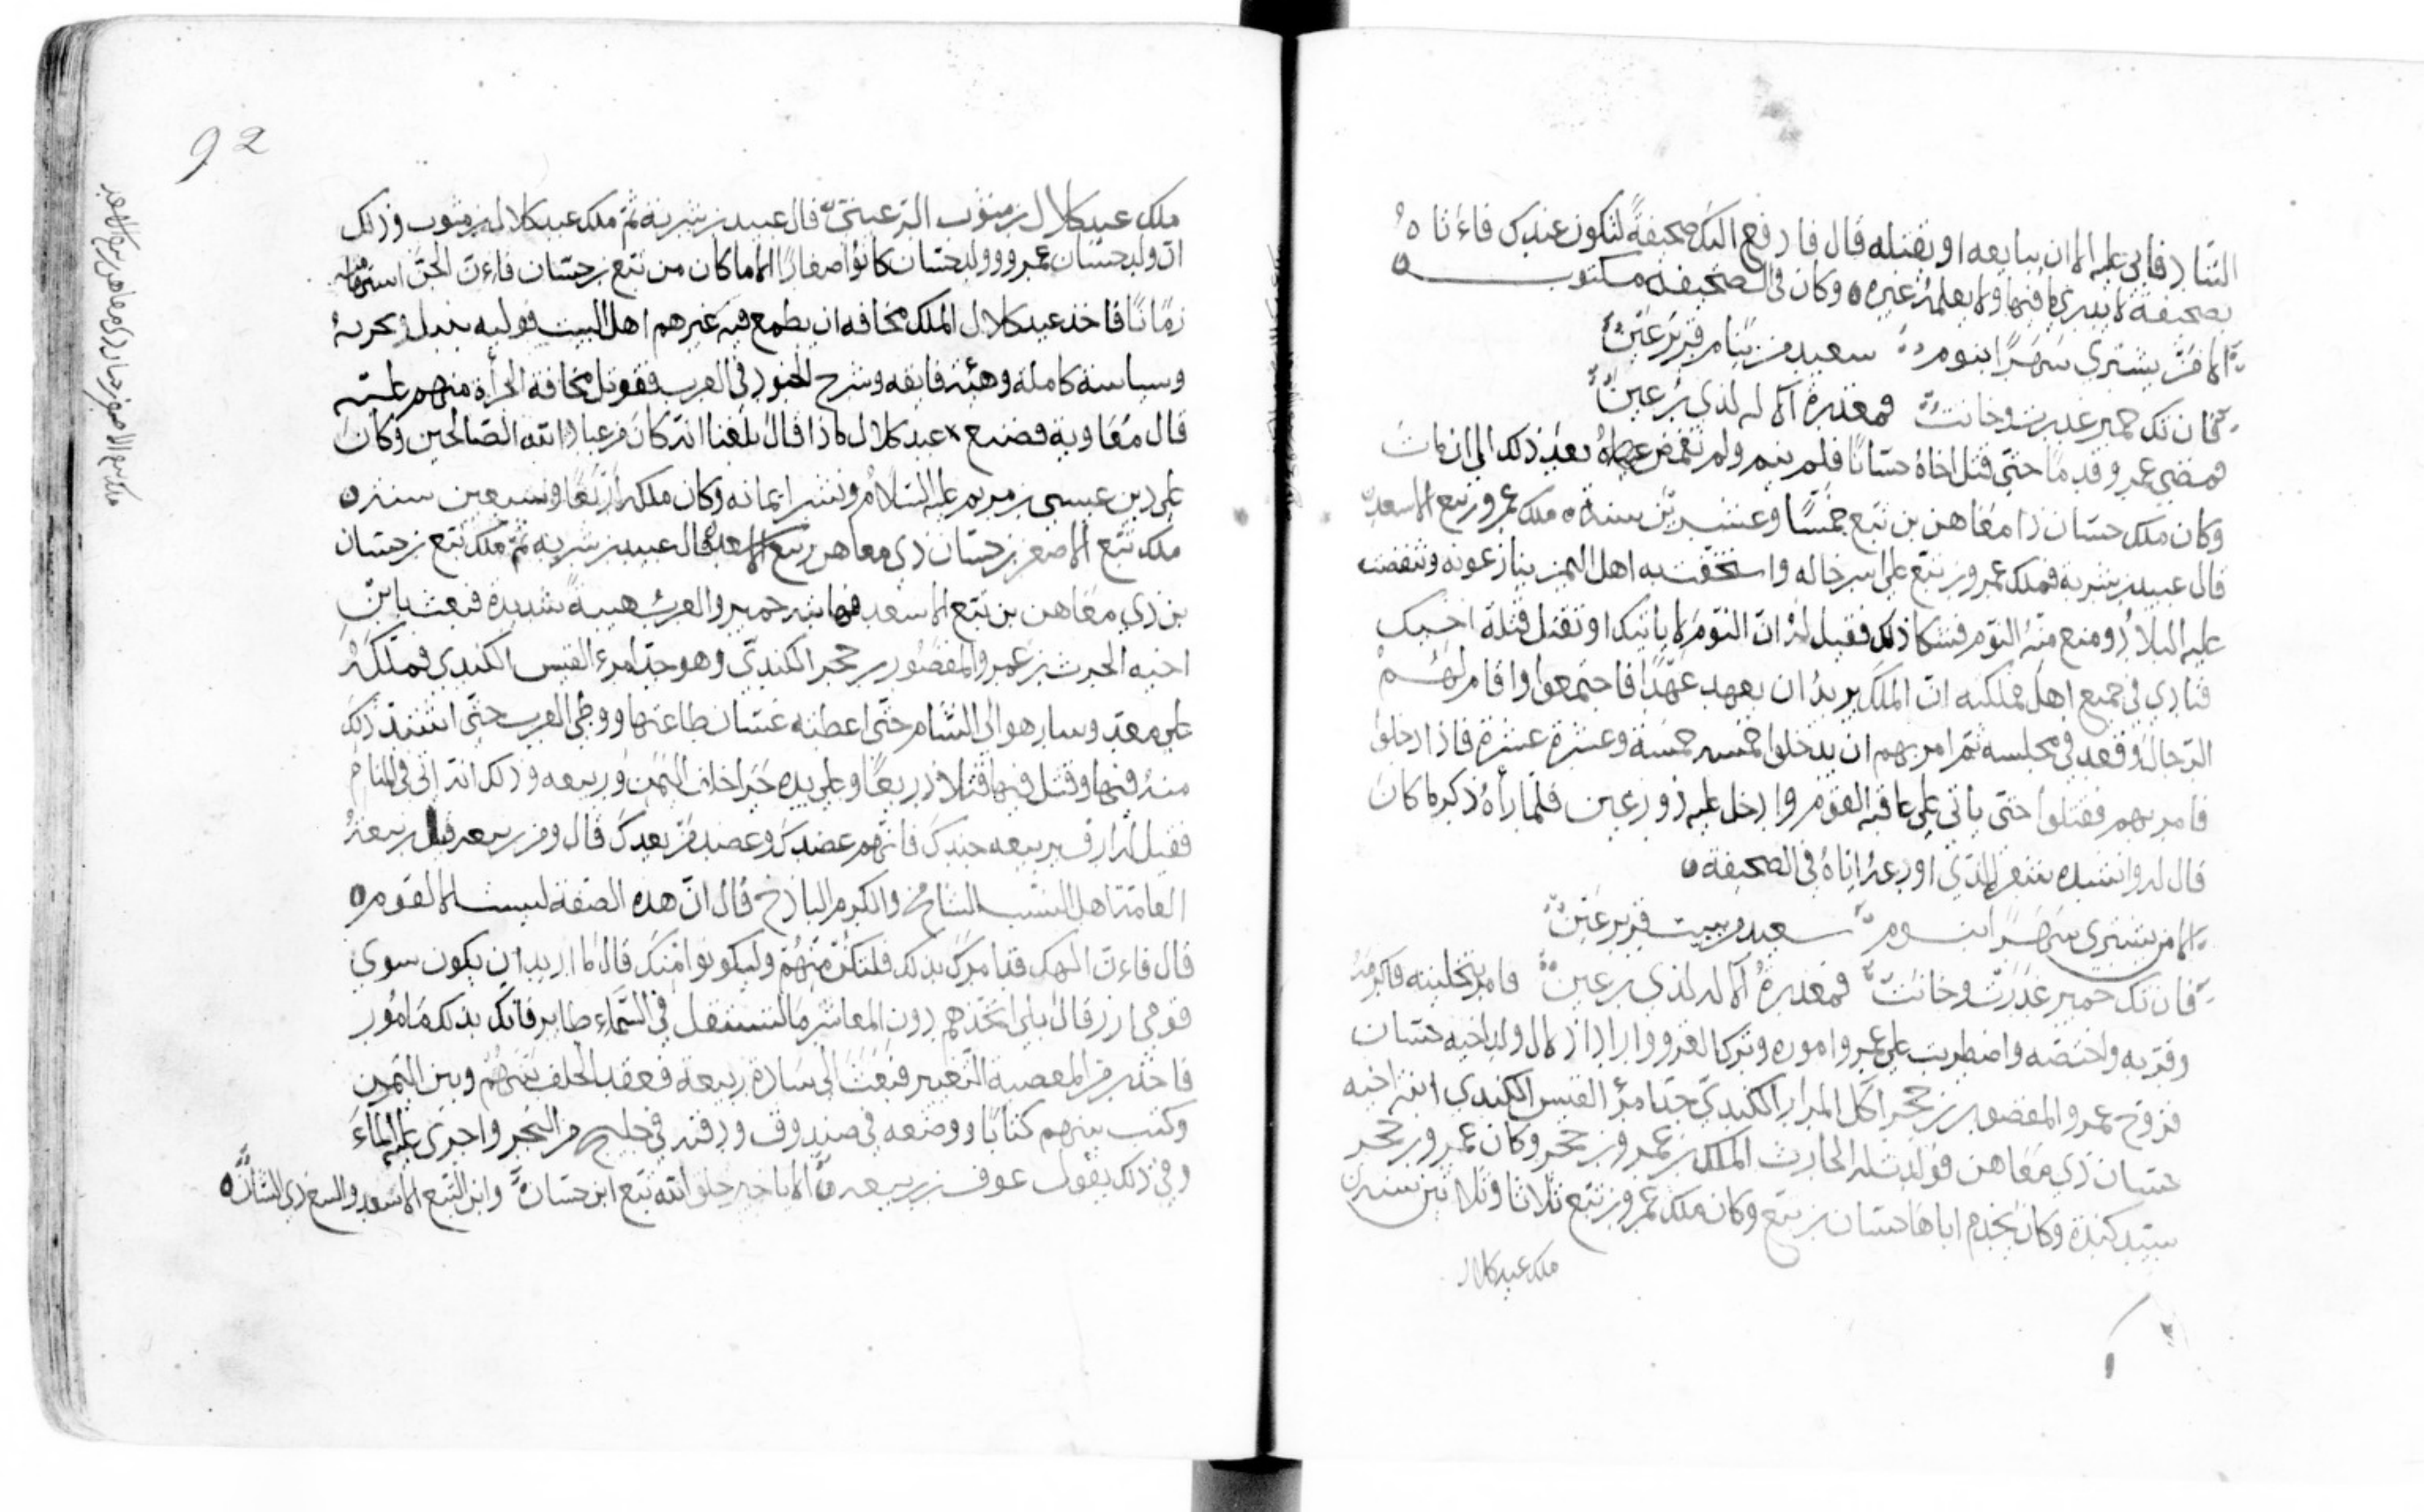 السّاد فابى عليه الا ان يبايعه او يقتله قال فادفع اليك صحيفةً لتكون عندك فاءتاه
بصحيفة لا يدرى ما فيها ولا يعلمه غيره ه وكان فى الصحيفه مكتوب ه
الا مَنْ يشترى سَهَرًا بنوم سعيد من ينام قرير عَيْن
فان تك حمير غدرت وخانت فمعذرة الاله لذى رُعين
فمضى عمرو قدمًا حتى قتل اخاهُ حسّانًا فلم ينم ولم تغمض عيناهُ بعد ذلك الى ان مات
وكان ملك حسّان ذا معاهن بن تبع خمسًا وعشرين سنة ه ملك عمرو بن تبع الاسعد
قال عبيد بن شرية فملك عمرو بن تبع على اسر حاله واستخفّت به اهل اليمن ينازعونه وتنغضت
عليه البلادُ ومنع منهُ النوم فشكا ذلك فقيل لهُ انّ النوم لا ياتيك او تقتل قتلة اخيك
فنادى فى جميع اهل مملكته انّ الملك يريدُ ان يعهد عَهْدًا فاجتمعوا واقام لهُم
الرّجال وقعد فى مجلسه ثم امر بهم ان يدخلوا خمسه خمسة وعشرة عشرة فاذا دخلوا
فامر بهم فقتلوا حتى ياتى على عاقبه القوم وادخل عليه ذو رعين فلمّا رآهُ ذكر ما كان
قال له وانشده شعر الذى اودعهُ اياهُ فى الصحيفة ه
الا من يشترى سَهَرًا بنوم سعيد من يبيت قرير عَيْن
فان تك حمير غَدَرَتْ وخانَتْ فمعذرةُ الاله لذى رعين فامر بتخليته فاكرمهُ
وقرّبه واختصّه واضطربت على عمرو اموره وترك الغزو واراد اذلال ولد اخيه حسّان
فزوّج عمرو المقصور بن حجر آكل المرار الكندىّ جدّ امرؤ القيس الكندى ابنة اخيه
حسّان ذى معاهن فولدت له الحارث الملك بن عمرو بن حجر وكان عمرو بن حجر
سيّد كندة وكان يخدم اباها حسّان بن تبع وكان ملك عمرو بن تبع ثلاثا وثلاثين سنة
ملك عبد كلال
92
ملك عبد كلال بن مثوب الرّعينىّ قال عبيد بن شرية ثمّ ملك عبد كلال بن مثوب وذلك
انّ ولد حسّان عمرو وولد حسّان كانُوا صغارًا الا ما كان من تبع بن حسّان فاءنّ الجنّ استهامته
زمَانًا فاخذ عبد كلال الملك مخافه ان يطمع فيه غيرهم اهل البيت فوليه وتجربهُ
وسياسة كاملة وهيئة فايقه وشرح الجنود فى العرب مخافة الجرأة منهم عليه
قال مُعَاوية فصنع عبد كلال ماذا قال بلغنا انّه كان من عباد الله الصّالحين وكان
على دين عيسى بن مريم عليه السّلام ونشر ايمانه وكان ملكه اربعًا وسبعين سنة ه
ملك تبّع الاصغر بن حسّان ذى معاهن بن تبع الاسعد قال عبيد بن شريه ثمّ ملك تبع بن حسّان
بن ذى معَاهن بن تبع الاسعد فهابته حمير والعربُ هيبةً شديدة فبعث بابن
اخيه الحرث بن عمرو المقصُور بن حجر الكندىّ وهو جدّ امرء القيس الكندى فملّكهُ
على معدّ وسار هو الى الشّام حتى اعطته غسّان طاعتها ووطى العرب حتّى اشتدّ ذلك
منهُ فيها وقتل فيها قتلا ذريعًا وعلى يده جرَا حلف اليَمَن وربيعه وذلك انه اتى فى المنام
فقيل لهُ اردف بربيعه جندك فانّهم عضدك وعضد من بعدك قال ومن ربيعه قيل ربيعةُ
العامّة اهل النسب الشامخ والكرم الباذخ قال انّ هذه الصّفة ليست الا لقوم ه
قال فاءنّ الهك قد امرك بذلك فلتكن منهُمْ وليكونوا منك قال ما اريد ان يكون سوى
قومى ازر قال بلى اتّخذهم دون المعاشر ما استقل فى السّماءِ طاير فانك بذلك مَامُور
فاحذر من المعصية التغيير فبعَثَ الى سَادة ربيعة فعقد الحلف بينهُمْ وبين اليمن
وكتب بينهم كتابًا ووضعه فى صندوق ودفنه فى خليج من البحر واجرى عليه الماءَ
وفى ذلك يقول عوف بن ربيعه الا يا خير خلق الله تبع ابن حسّان وابن التبع الاسعد والتبع ذى الشان ه
ملك تبع الاصغر بن حسان ذى معاهن بن تبع الاسعد